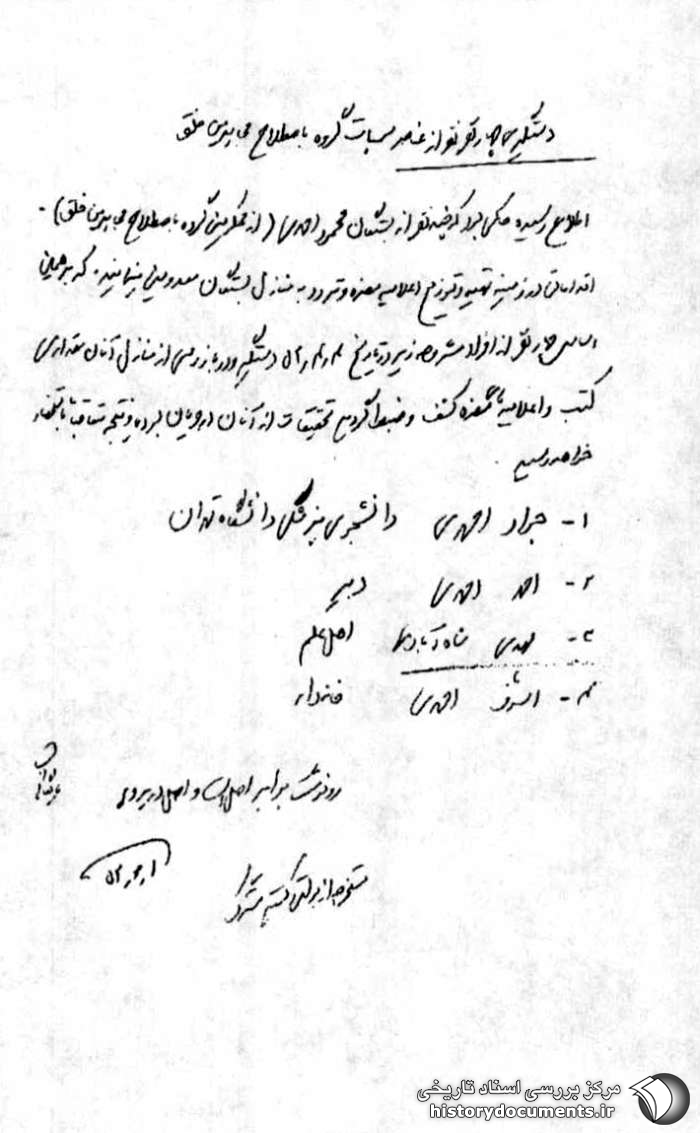 دستگیری چهار نفر از عناصر گروه باصطلاح مجاهدین خلق
اطلاع رسیده حاکی بود که چند نفر از بستگان محمود احمدی (از محکومین گروه باصطلاح مجاهدین خلق)
اقداماتی در زمینه تهیه و توزیع اعلامیه مضره و تردد به منازل بستگان معدومین مینمایند. که بر همین
اساس چهار نفر از افراد مشروحه زیر در تاریخ دستگیر و در بازرسی از منازل آنان مقداری
کتب و اعلامیه مضره کشف و ضبط گردید تحقیقات از آنان در جریان بوده و نتیجه متعاقباً باستحضار
خواهد رسید.
۱- جواد احمدی دانشجوی پزشکی دانشگاه تهران
۲- احمد احمدی دبیر
۳- مهدی شاه آبادی اهل علم
۴- اشرف احمدی خانه‌دار
رونوشت برابر اصل است و اصل در پرونده
مستخرجه از بولتن کمیته مشترک
مرکز بررسی اسناد تاریخی
historydocuments.ir